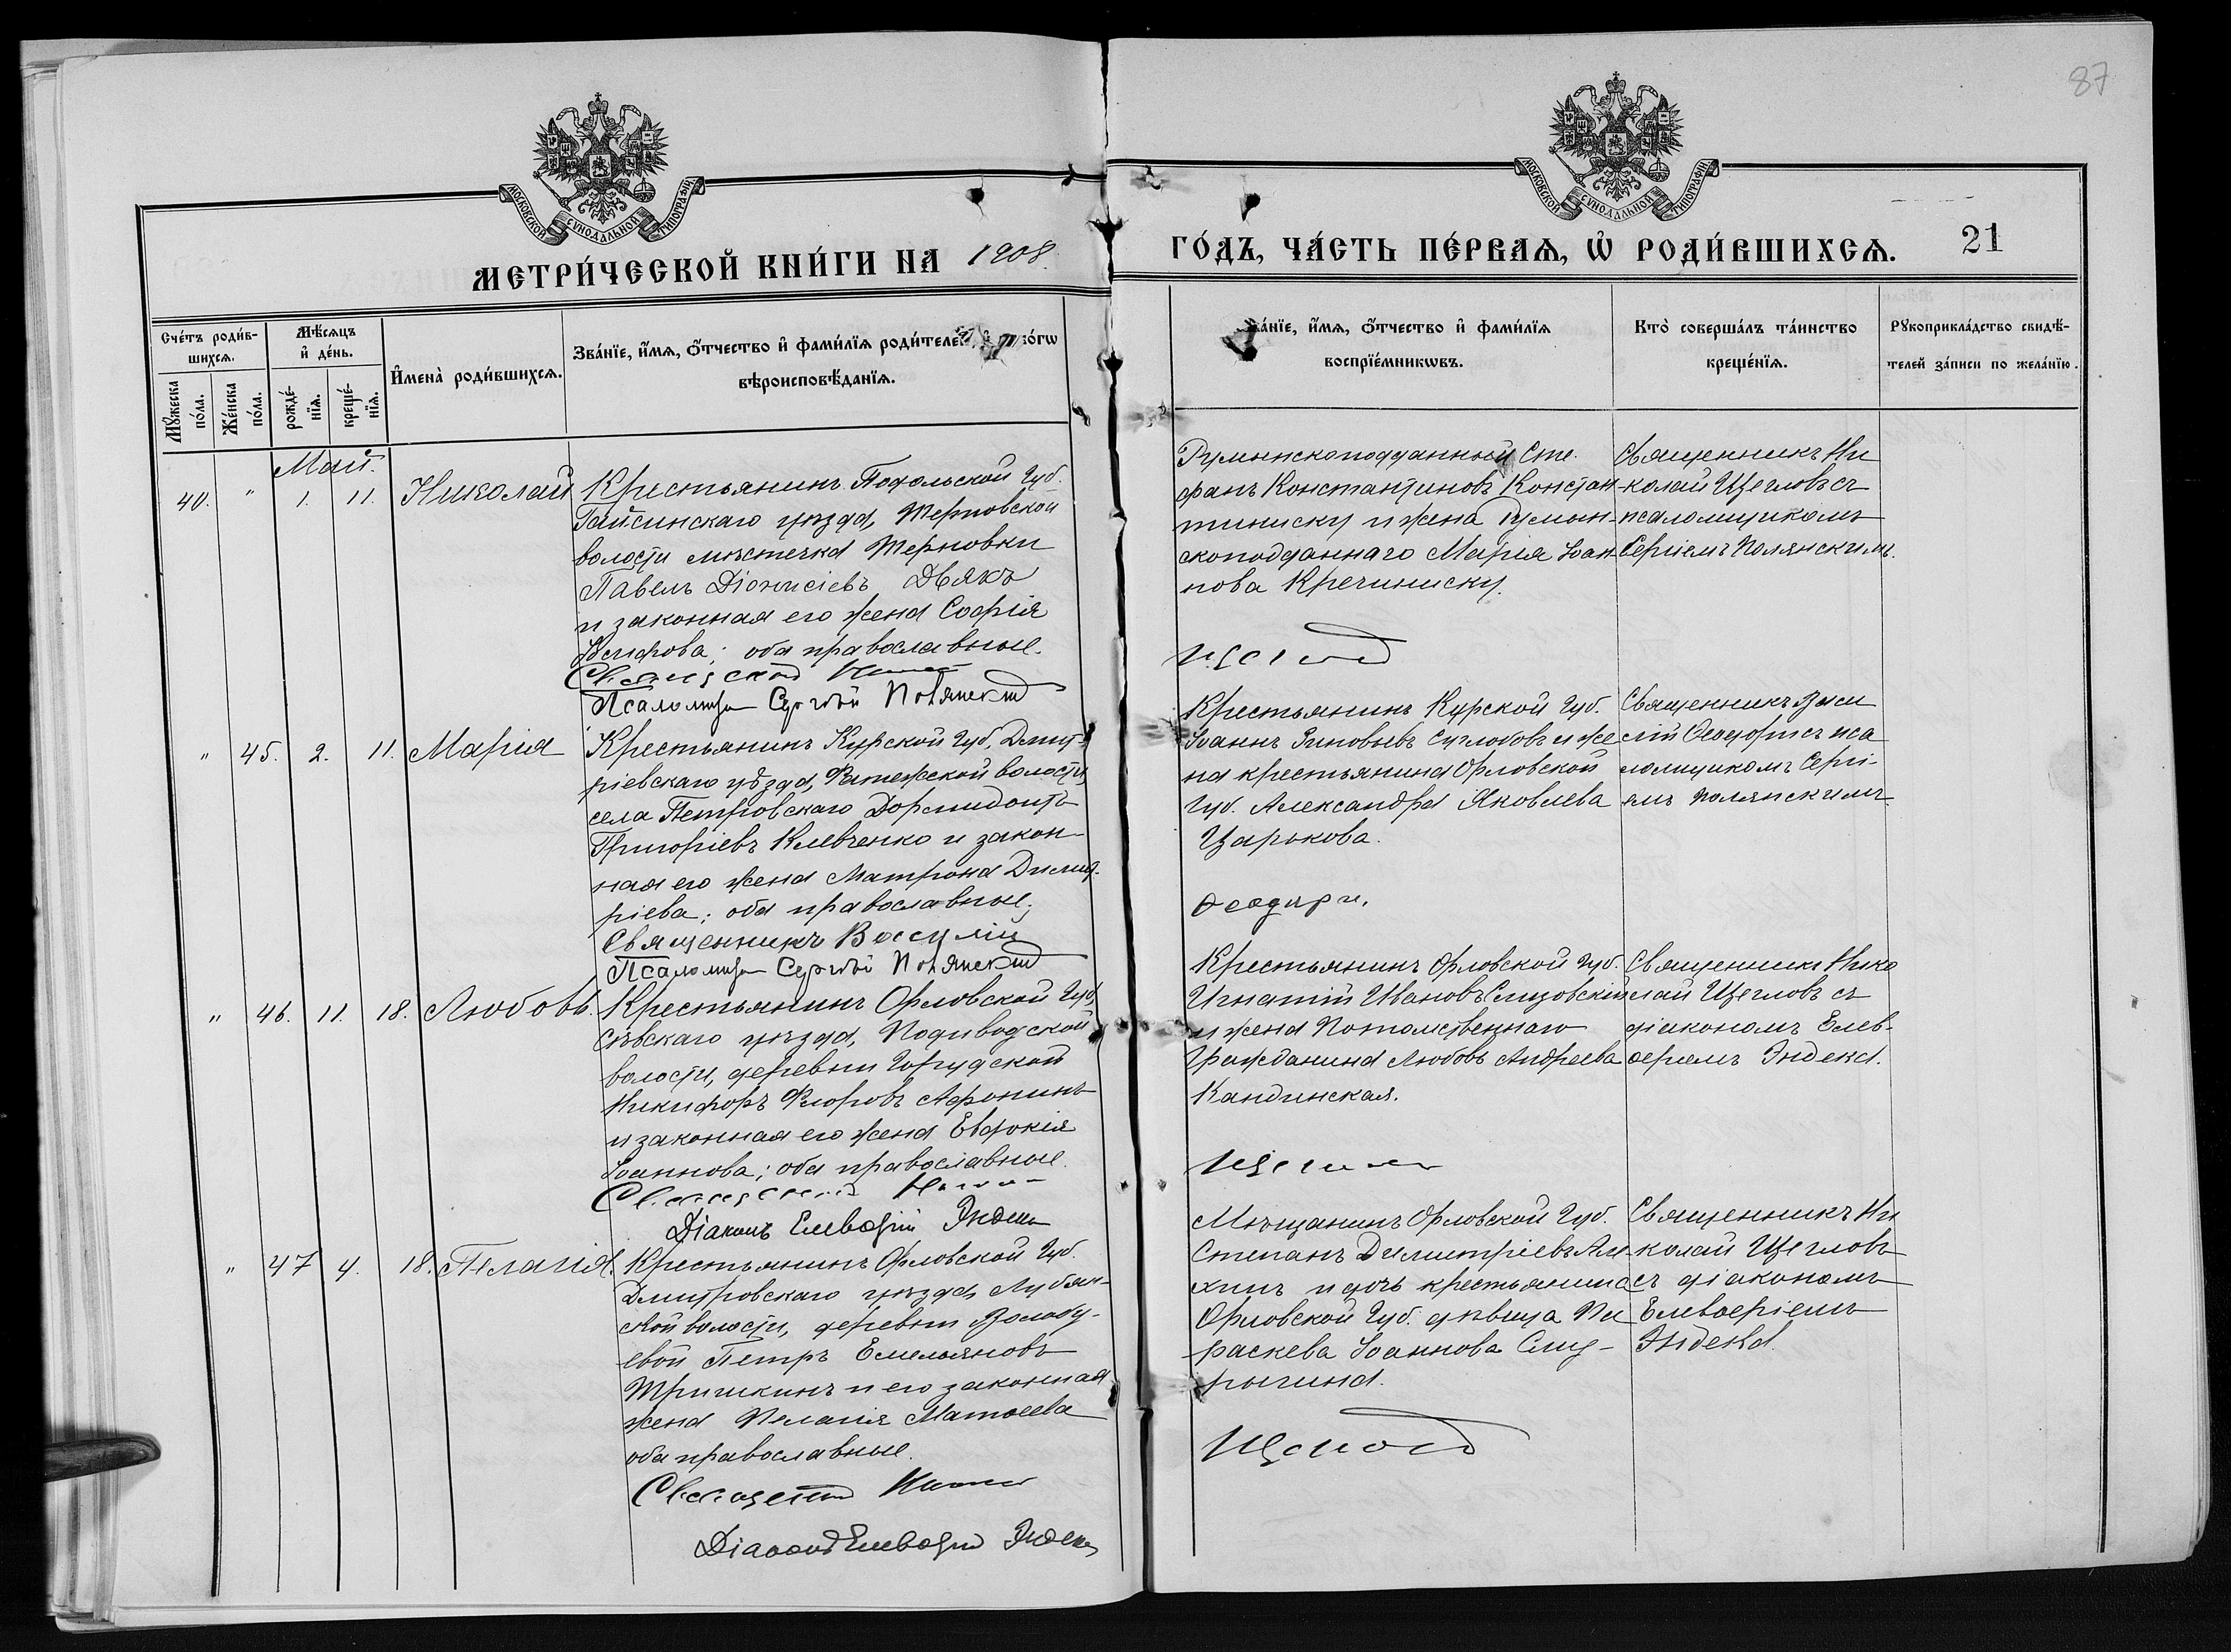 87
МОСКОВСКОЙ СѴНОДАЛЬНОЙ ТИПОГРАФІИ
МОСКОВСКОЙ СѴНОДАЛЬНОЙ ТИПОГРАФІИ
МЕТРИ́ЧЕСКОЙ КНИ́ГИ НА 1908.
ГО́ДЪ, ЧА́СТЬ ПЕ́РВАѦ, Ѡ҆ РОДИ́ВШИХСѦ. 21
Сче́тъ роди́в-
шихсѧ.
Мꙋ́жеска по́ла.
Же́нска по́ла.
Мѣ́сѧцъ и҆ де́нь.
рожде́-
нїѧ.
креще́-
нїѧ.
И҆мена̀ роди́вшихсѧ.
Зва́нїе, и҆́мѧ, ѻ҆́тчество и҆ фами́лїѧ роди́телей, и҆
вѣроисповѣ́данїѧ.
Зва́нїе, и҆́мѧ, ѻ҆́тчество и҆ фами́лїѧ
воспрїе́мникѡвъ.
Кто̀ соверша́лъ та́инство
креще́нїѧ.
Рꙋкоприкла́дство свидѣ́-
телей за́писи по жела́нїю.
Май.
40. " 1. 11. Николай
Крестьянинъ Подольской Губ.
Гайсинскаго уѣзда, Терновской
волости мѣстечка Терновки
Павелъ Діонисіевъ Дьякъ
и законная его жена Софія
оба православные.
Псаломщ Сергѣй Полянский
Румынскоподданный Сте-
фанъ Константиновъ Констан-
тиниску и жена Румын-
скоподданнаго Марія Іоан-
нова Кречиниску.
Священникъ Ни
колай Щегловъ съ
псаломщикомъ
Сергіемъ Полянскимъ.
" 45. 2. 11. Марія
Крестьянинъ Курской Губ, Дмит-
ріевскаго уѣзда, Фатежской волости,
села Петровскаго Дормидонтъ
Григоріевъ Клевченко и закон-
ная его жена Матрона Димит-
ріева; оба православные;
Священникъ Василій
Псаломщ Сергѣй Полянский
Крестьянинъ Курской Губ.
Іоаннъ Зиновьевъ и же
на крестьянина Орловской
Губ. Александра Яковлева
Царькова.
Ѳеодори.
Священникъ Васи
лій Ѳеодори съ пса
ломщикомъ Сергі-
емъ Полянскимъ
" 46. 11. 18. Любовь.
Крестьянинъ Орловской Губ,
Сѣвскаго уѣзда, Подиводской
волости, деревни
Никифоръ Флоровъ Афонинъ
и законная его жена Евдокія
Іоаннова; оба православные.
Діаконъ Елевѳерій Эндека
Крестьянинъ Орловской Губ.
Игнатій Ивановъ Слизовскій
и жена Потомственнаго
Гражданина Любовь Андреева
Кандинская.
Священникъ Нико
лай Щегловъ съ
діакономъ Елев-
ѳеріемъ Эндека.
" 47 4. 18. Пелагія.
Крестьянинъ Орловской Губ.
Дмитровскаго уѣзда Лубян-
ской волости, деревни Волобу-
евой Петръ Емельяновъ
Тришкинъ и его законная
жена Пелагія Матѳеева
оба православные.
Діаконъ Елевѳерій Эндека
Мѣщанинъ Орловской Губ.
Степанъ Димитріевъ Ал-
хинъ и дочь крестьянина
Орловской Губ. дѣвица Па
раскева Іоаннова Сму-
рыгина.
Священникъ Ни
колай Щегловъ
съ діакономъ
Елевѳеріемъ
Эндека.